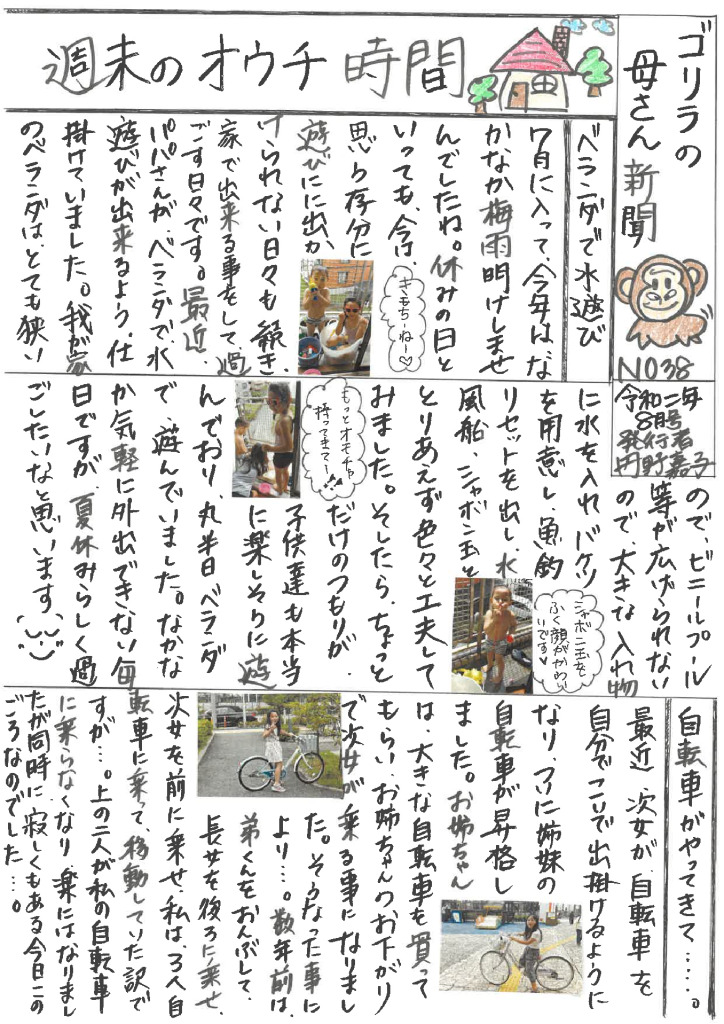 ゴリラの
母さん新聞
NO38
令和二年
8月号
発行者
円野嘉子
週末のオウチ時間
ベランダで水遊び
7月に入って、今年はな
かなか梅雨明けしませ
んでしたね。休みの日と
いっても、今は、
思う存分に
遊びにに出か
けられない日々も続き、
家で出来る事をして、過
ごす日々です。最近、
パパさんが、ベランダで、水
遊びが出来るよう、仕
掛けていました。我が家
のベランダは、とても狭い
きもちーねー♡
ので、ビニールプール
等が広げられない
ので、大きな入れ物
に水を入れ、バケツ
を用意し、魚釣
りセットを出し、水
風船、シャボン玉と
とりあえず色々と工夫して
みました。そしたら、ちょっと
だけのつもりが、
子供達も本当
に楽しそうに遊
んでおり、丸半日ベランダ
で、遊んでいました。なかな
か気軽に外出できない毎
日ですが、夏休みらしく過
ごしたいなと思います
シャボン玉を
ふく顔がかわい
いです♡
もっとオモチャ
持ってきてー!!
自転車がやってきて……。
最近、次女が、自転車を
自分でこいで出掛けるように
なり、ついに姉妹の
自転車が昇格し
ました。お姉ちゃん
は、大きな自転車を買って
もらい、お姉ちゃんのお下がり
で次女が乗る事になりまし
た。そうなった事に
より…。数年前は、
弟くんをおんぶして、
長女を後ろに乗せ、
次女を前に乗せ、私は、3人自
転車に乗って、移動していた訳で
すが…。上の二人が私の自転車
に乗らなくなり、楽にはなりまし
たが同時に寂しくもある今日この
ごろなのでした…。